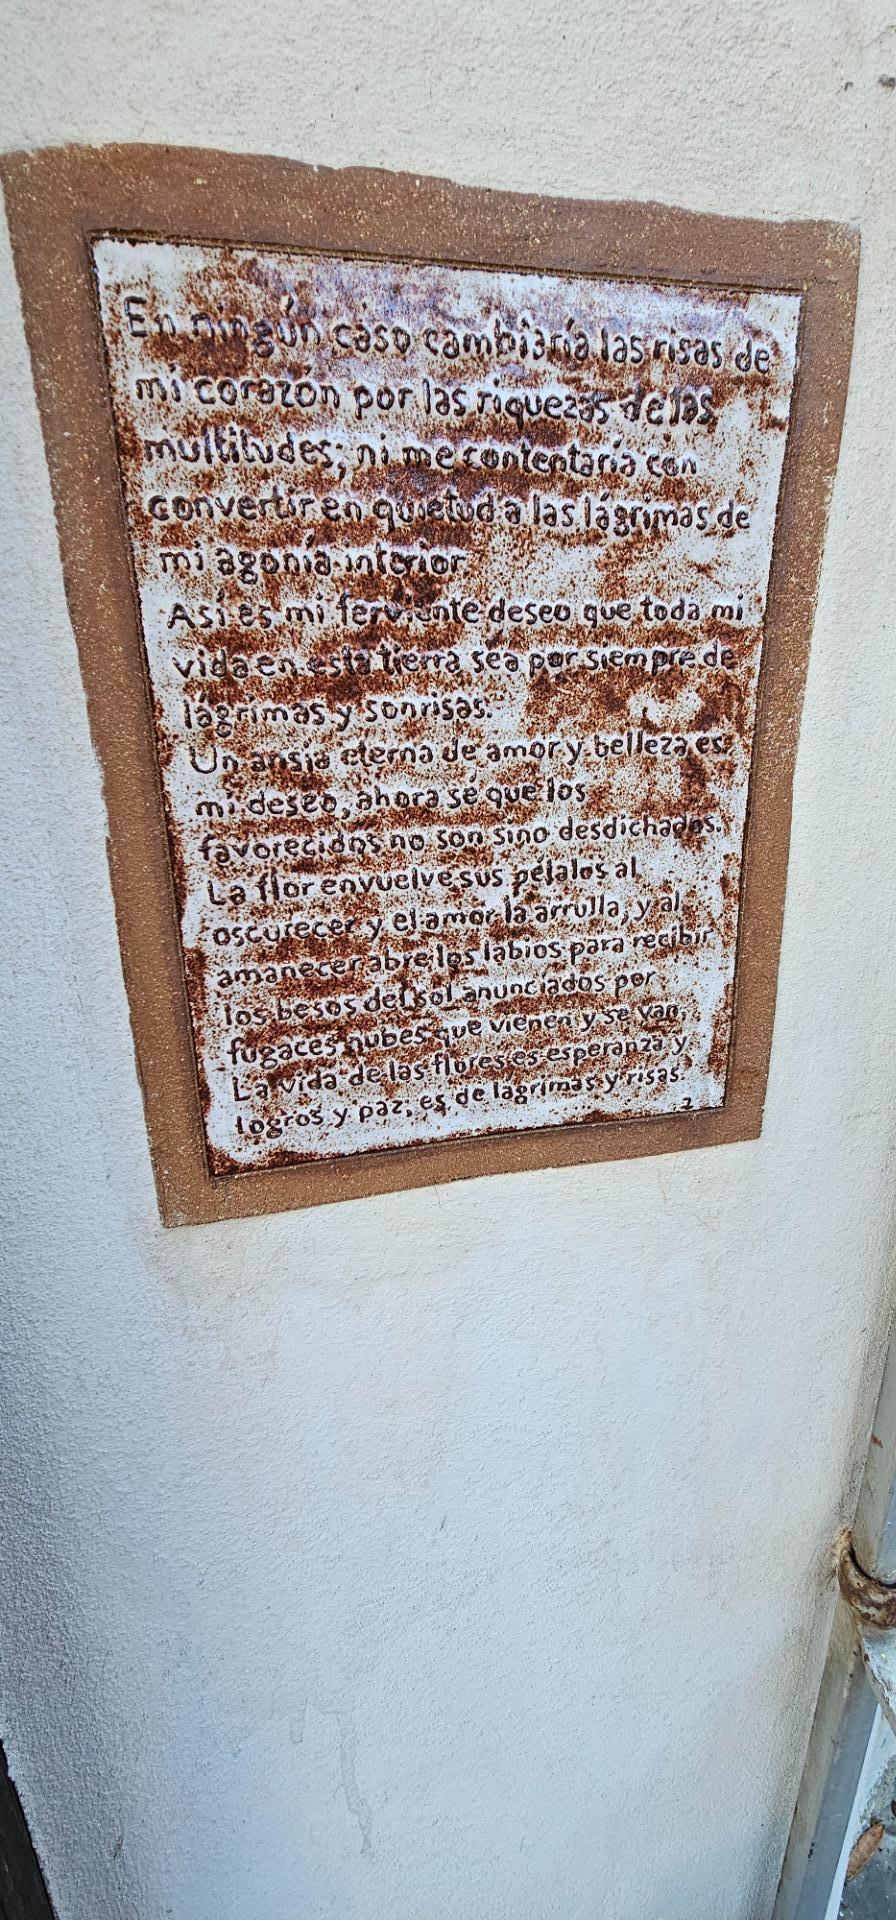 En ningún caso cambiaría las risas de
mi corazón por las riquezas de las
multitudes; ni me contentaría con
convertir en quietud a las lágrimas de
mi agonía interior.
Así es mi ferviente deseo que toda mi
vida en esta tierra sea por siempre de
lágrimas y sonrisas.
Un ansia eterna de amor y belleza es
mi deseo, ahora sé que los
favorecidos no son sino desdichados.
La flor envuelve sus pétalos al
oscurecer y el amor la arrulla, y al
amanecer abre los labios para recibir
los besos del sol anunciados por
fugaces nubes que vienen y se van.
La vida de las flores es esperanza y
logros y paz; es de lágrimas y risas.
2